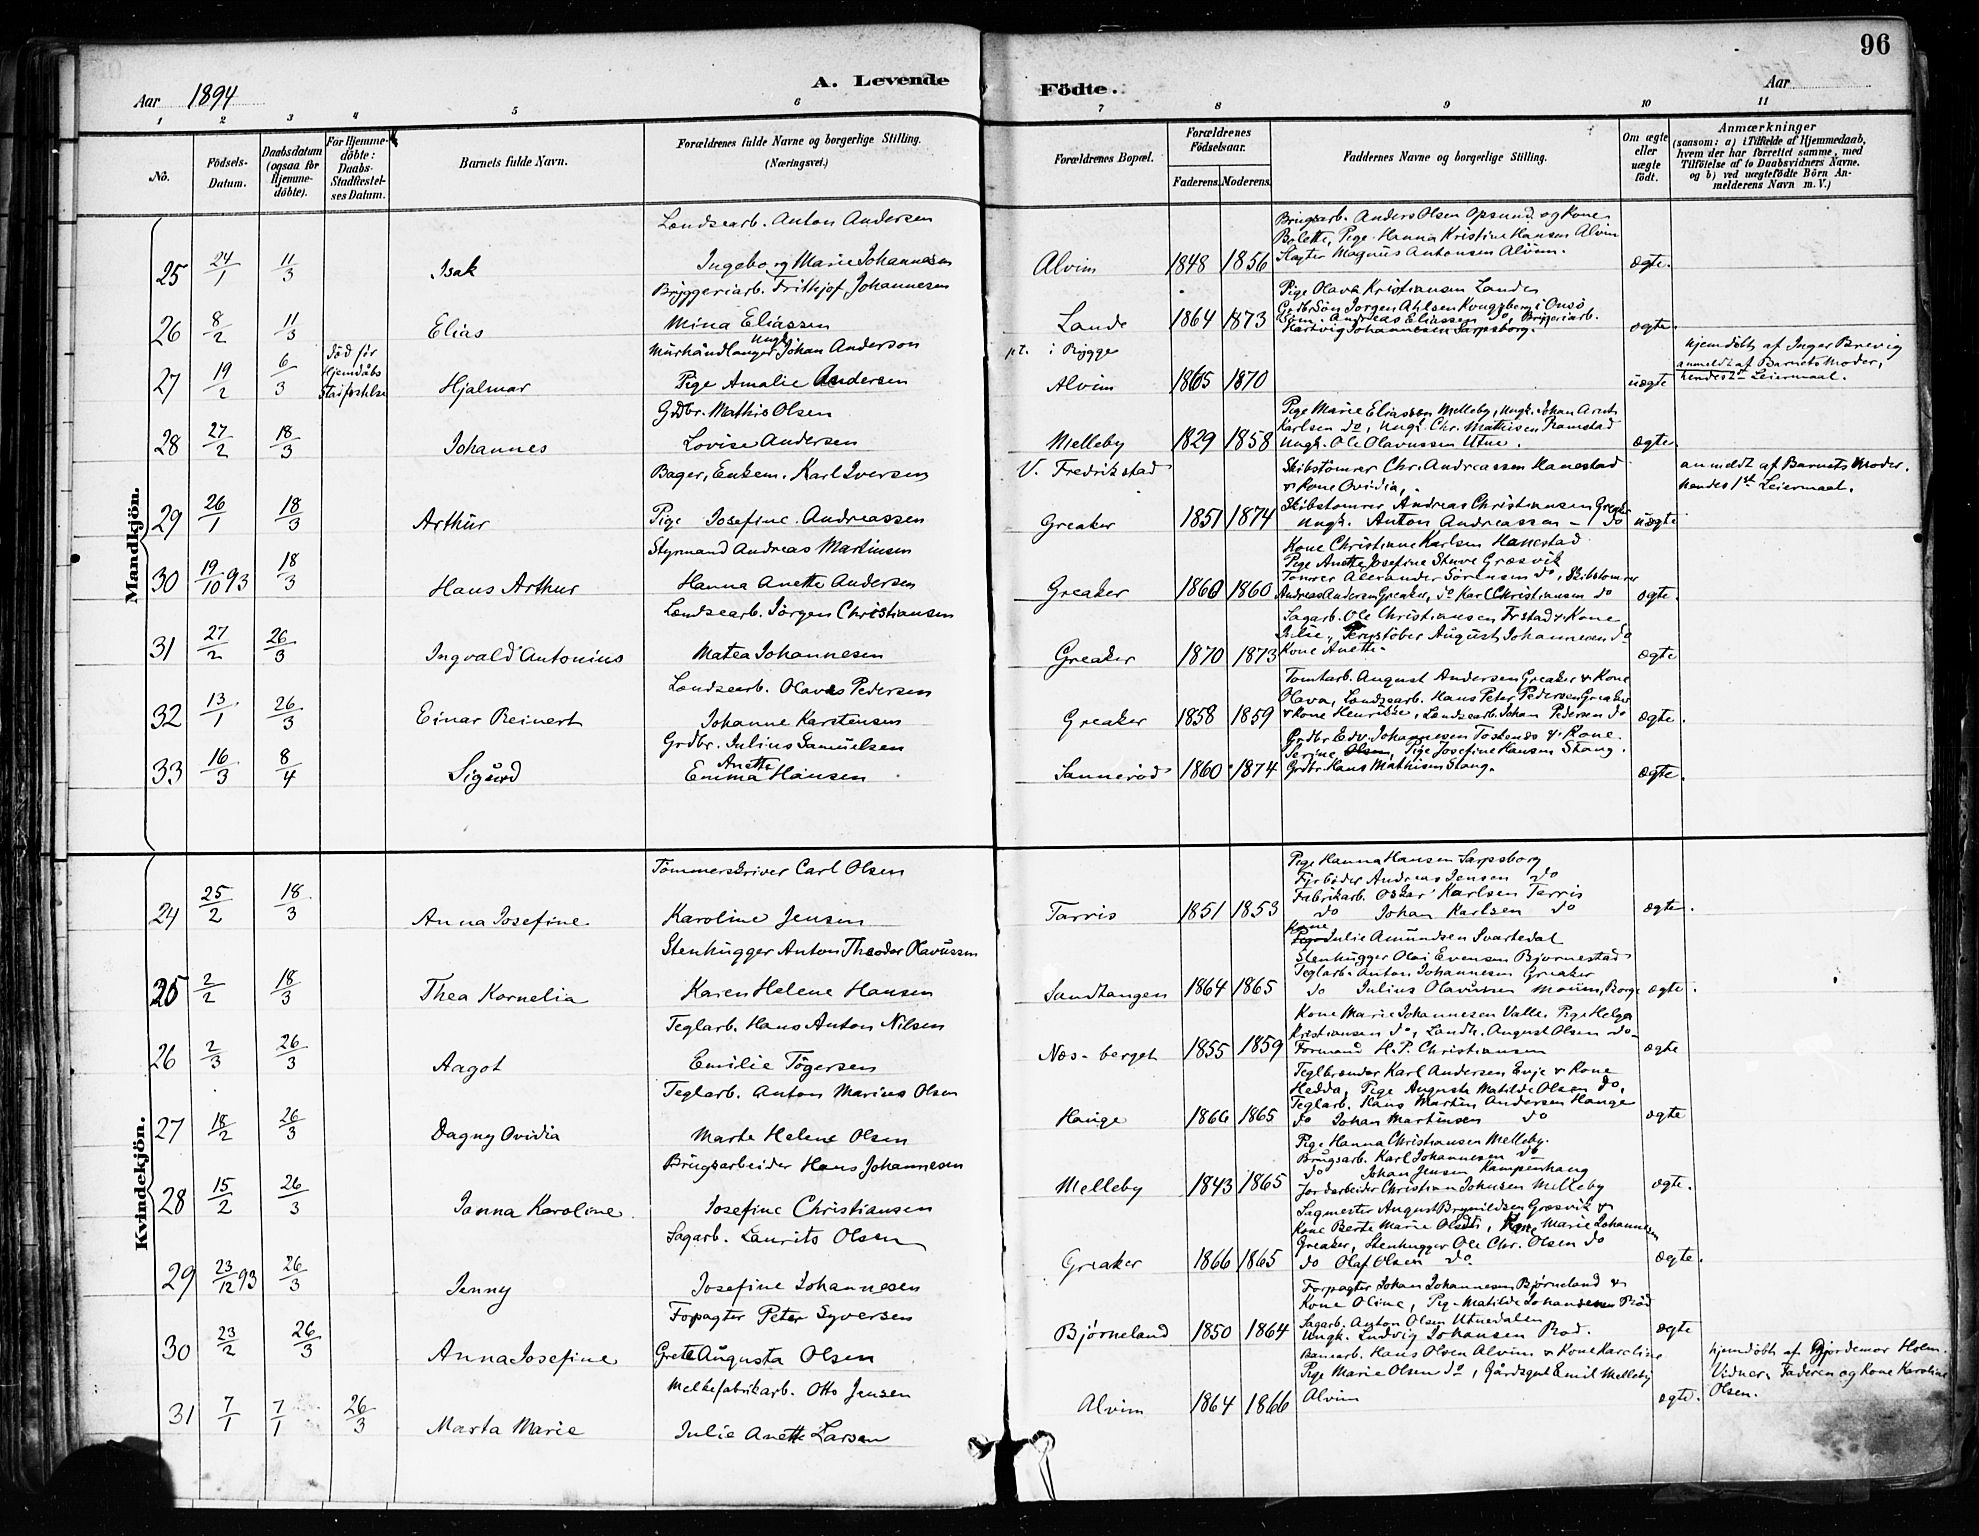 96
Aar 1894
A. Levende
Födte.
Aar
1 2 3 4 5 6 7 8 9 10 11
No.
Födsels-Datum.
Daabsdatum (ogsaa for Hjemme-döbte).
For Hjemme-döbte: Daabs-Stadfæstel-ses Datum.
Barnets fulde Navn.
Forældrenes fulde Navne og borgerlige Stilling.
(Næringsvei.)
Forældrenes Bopæl.
Forældrenes Födselsaar.
Faderens. Moderens.
Faddernes Navne og borgerlige Stilling.
Om ægte eller uægte födt.
Anmærkninger
(saasom: a) i Tilfælde af Hjemmedaab,
hvem der har forrettet samme, med
Tilföielse af to Daabsvidners Navne.
og b) ved uægtefödte Börn An-
melderens Navn m. V.)
Mandkjön.
Landsearb. Anton Andersen
25 24/1 11/3 Isak Ingeborg Marie Johannesen
Alvim 1848 1856
Brugsarb. Anders Olsen Opsund og Kone
Bolette, Pige Hanna Kristine Hansen Alvim
Slagter Magnus Antonsen Alvim.
ægte.
Bryggeriarb. Frithjof Johannesen
26 8/2 11/3 Elias Mina Eliassen
Lande 1864 1873
Pige Olava Kristiansen Lande
Grdbr Søn Jørgen Ahlsen Kongsberg i Onsø
Andreas Eliassen do, Bryggeriarb.
Hartvig Johannesen Sarpsborg.
ægte.
Murhåndlanger Ungk. Johan Anderson
27 19/2 6/3 død før Hjemdåbs Stadfæstelse Hjalmar Pige Amalie Andersen
pt. i Rygge
Alvim 1865 1870 uægte
hjemdøbt af Inger Brevig
anmeldt af Barnets Moder,
hendes 2det Leiermaal.
Grdbr. Mathis Olsen
28 27/2 18/3 Johannes Lovise Andersen
Melleby 1829 1858
Pige Marie Eliassen Melleby, Ungk. Johan Arnt
Karlsen do, Ungk. Chr. Mathisen Ramstad
Ungk. Ole Olavussen Utne.
ægte.
Bager, Enkem. Karl Iversen
29 26/1 18/3 Arthur Pige Josefine Andreassen
V. Fredrikstad
Greaker 1851 1874
Skibstømrer Chr. Andreassen Hanestad
& Kone Ovidia,
Skibstømrer Andreas Christiansen Greaker
Ungk. Anton Andreassen - do
uægte
anmeldt af Barnets Moder.
hendes 1st Leiermaal.
Styrmand Andreas Martinsen
30 19/10 93 18/3 Hans Arthur Hanna Anette Andersen
Greaker 1860 1860
Kone Christiane Karlsen Hanestad
Pige Anette Josefine Stuve Græsvik
Tømrer Alexander Sörensen do, Skibstømrer
Andreas Andersen Greaker, do Karl Christiansen do
ægte.
Landsearb. Jörgen Christiansen
31 27/2 26/3 Ingvald Antonius Matea Johannesen
Greaker 1870 1873
Sagarb. Ole Christiansen Frstad & Kone
Julie, Jernstöber August Johannesen do
Kone Anette.
ægte
Landsearb. Olaves Pedersen
32 13/1 26/3 Einar Reinert Johanne Karstensen
Greaker 1858 1859
Tomtarb. August Andersen Greaker & Kone
Olava, Landsearb. Hans Peter Pedersen Greaker
& Kone Henrikke, Landsearb. Johan Pedersen do
ægte.
Grdbr. Julius Samuelsen
33 16/3 8/4 Sigurd Emma Anette Hansen
Sannerød 1860 1874
Grdbr Edv. Johannesen Tøsknes & Kone
Serine Olsen, Pige Josefine Hansen Stang.
Grdbr. Hans Mathisen Stang.
ægte.
Kvindekjön.
Tömmerskriver Carl Olsen
24 25/2 18/3 Anna Josefine Karoline Jensen
Tarris 1851 1853
Pige Hanna Hansen Sarpsborg
Fyrböder Andreas Jensen do
Fabrikarb. Oskar Karlsen Tarris
do Johan Karlsen do
ægte.
Stenhugger Anton Theodor Olavussen
25 2/2 18/3 Thea Kornelia Karen Helene Hansen
Sandtangen 1864 1865
Kone
Pige Julie Amundsen Svartedal
Stenhugger Olai Evensen Bjørnestad
Teglarb. Anton Johannesen Greaker
do Julius Olavussen Moum, Borge
ægte.
Teglarb. Hans Anton Nilsen
26 2/3 26/3 Aagot Emilie Tögersen
Næs-berget 1855 1859
Kone Marie Johannesen Valle Pige Helga
Kristiansen do, Landh. August Olsen do
Formand H. P. Christiansen
ægte
Teglarb. Anton Marius Olsen
27 18/2 26/3 Dagny Ovidia Marte Helene Olsen
Hauge 1866 1865
Teglbrænder Karl Andersen Enje & Kone
Hedda, Pige Augusta Matilde Olsen do,
Teglarb. Hans Martin Andersen Hauge
do Johan Martinsen do
ægte
Brugsarbeider Hans Johannesen
28 15/2 26/3 Janna Karoline Josefine Christiansen
Melleby 1843 1865
Pige Hanna Christiansen Melleby.
Brugsarb. Karl Johannesen do
do Johan Jensen Kampenhaug
Jordarbeider Christian Johnsen Melleby
ægte.
Sagarb. Laurits Olsen
29 23/12 93 26/3 Jenny Josefine Johannesen
Greaker 1866 1865
Sagmester August Brynildsen Græsvik &
Kone Berte Marie Olsdt, Kone Marie Johannesen
Greaker, Stenhugger Ole Chr. Olsen do
do Olaf Olsen do
ægte.
Forpagter Peter Syversen
30 23/2 26/3 Anna Josefine Grete Augusta Olsen
Bjørneland 1850 1864
Forpagter Johan Johannesen Bjørneland &
Kone Oline, Pige Matilde Johansen Rød
Sagarb. Anton Olsen Utnedalen
Ungk. Ludvig Johansen Rød.
ægte
Melkefabrikarb. Otto Jensen
31 7/1 7/1 26/3 Marta Marie Julie Anette Larsen
Alvim 1864 1866
Banearb. Hans Olsen Alvim & Kone Karoline
Pige Marie Olsen do, Gårdsgut Emil Melleby
Alvim
ægte.
hjemdøbt af Gjordemor Holm.
Vidner. Faderen og Kone Karoline
Olsen.